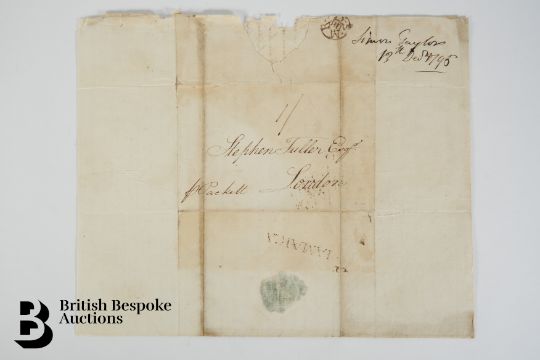 Simon Taylor
13th Decr 1795
1/
Stephen Fuller Esqr
London
pr Packett
JAMAICA
British Bespoke
Auctions